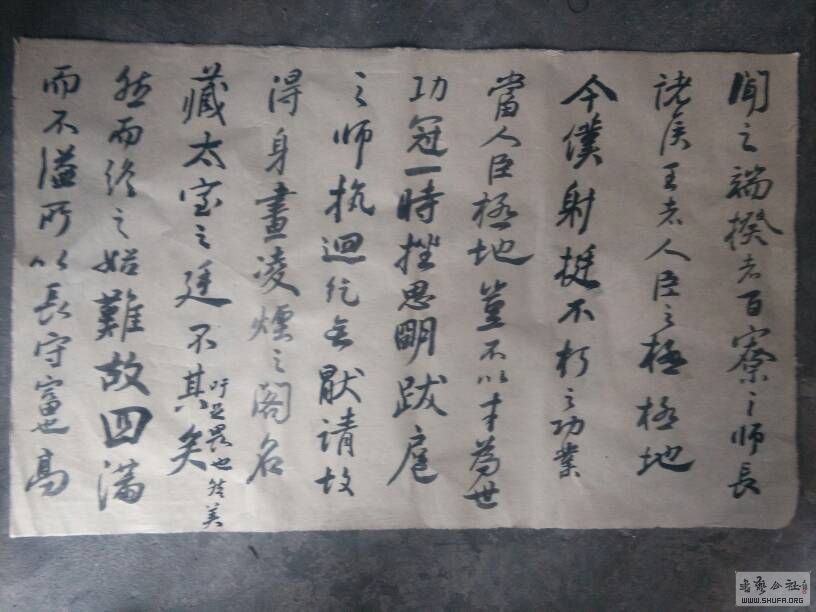 聞之端揆者百寮之师長
诸侯王者人臣之極極地
今僕射挺不朽之功業
當人臣極地豈不以才為世
功冠一時挫思明跋扈
之师抗迴纥無厭請故
得身畫凌煙之閣名
藏太室之廷不其矣
吁足畏也然美
然而终之始難故曰滿
而不溢所以長守富也高
書藝公社
WWW.SHUFA.ORG